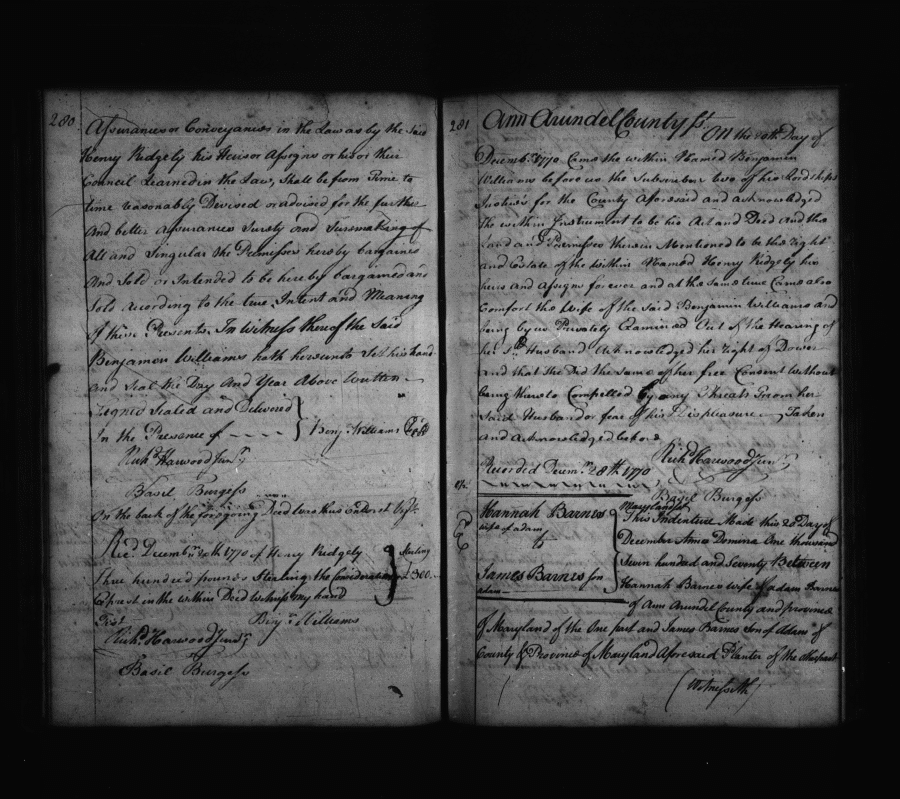 280
Assurances or Conveyances in the Law as by the said
Henry Ridgely his Heirs or Assigns or his or their
Council Learned in the Law, Shall be from Time to
time reasonably Devised or advised for the further
And better Assurance Surety and Suremaking of
All and Singular the Premisses hereby bargained
And Sold or Intended to be hereby bargained and
Sold According to the true Intent and Meaning
of these Presents. In Witness thereof the Said
Benjamin Williams hath hereunto Set his hand
and Seal the Day And Year Above Written
Signed Sealed and Delivered
In the Presence of - - - - } Benj. Williams
Richd Harwood Junr
Basil Burgess
On the back of the foregoing Deed was thus Endorst
Recd Decembr 20th 1770 of Henry Ridgely
Three hundred pounds Sterling the Consideration } Sterling £300..
Exprest in the within Deed Witness my hand
Test Benj. Williams
Richd Harwood Junr
Basil Burgess
281
Ann Arundel County Sst On the 20th Day of
Decembr 1770 Came the within Named Benjamin
Williams before us the Subscribers two of his Lordships
Justices for the County Aforesaid and acknowledged
the within Instrument to be his Act and Deed And the
Land and Premisses therein Mentioned to be the right
and Estate of the within Named Henry Ridgely his
heirs and Assigns forever and at the same time Came also
Comfort the Wife of the Said Benjamin Williams and
being by us Privately Examined Out of the Hearing of
her Sd Husband Acknowledged her right of Dower
and that she Did the Same of her free Consent Without
being thereto Compelled by any Threats from her
Said Husband or fear of his Displeasure Taken
and Acknowledged before
Richd Harwood Junr
Recorded Decemr 28th 1770
Basil Burgess
Hannah Barnes
wife of adam
to
James Barnes son
adam
Maryland Sst
This Indenture Made this 20 Day of
December Anno Domina One thousand
Seven hundred and Seventy Between
Hannah Barnes wife of adam Barnes
of Ann Arundel County and province
of Maryland of the One part and James Barnes Son of Adam of
County & Province of Maryland Aforesaid Planter of the other part
(Witnesseth)